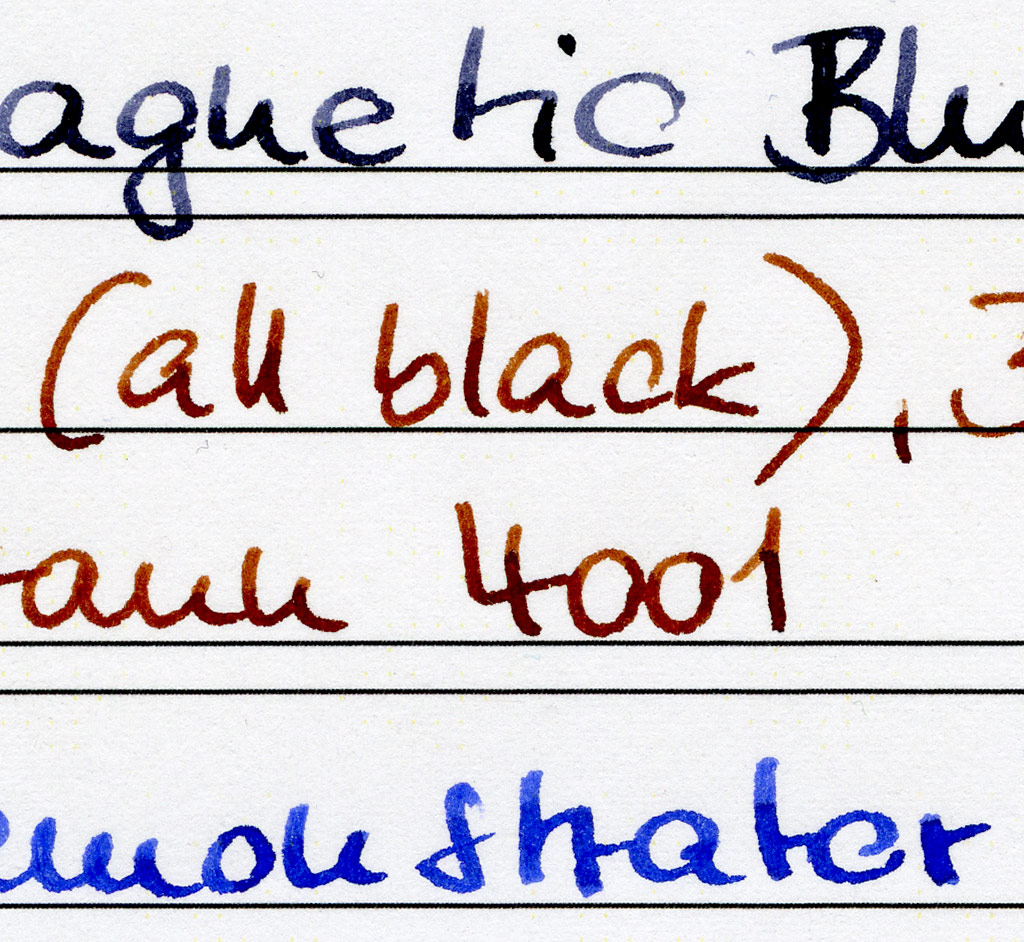 agnetic Blu
(all black), 3
raun 4001
emonstrater